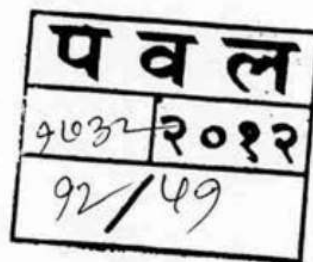 प व ल
१७३२ २०१२
१२/५१